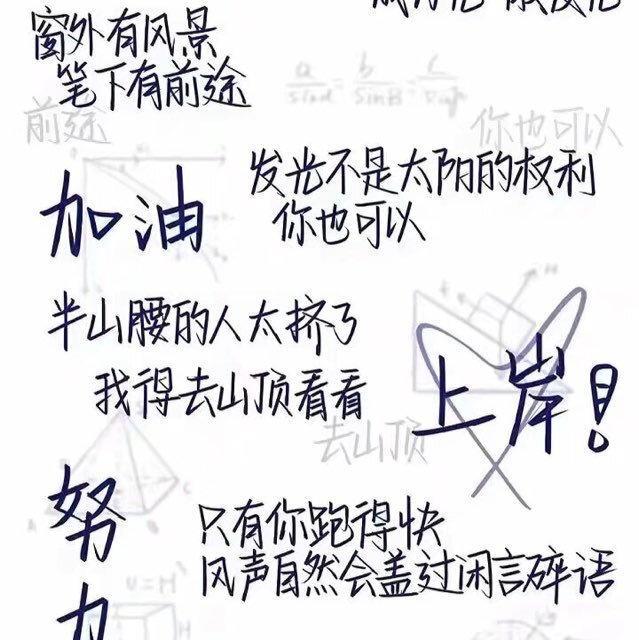 窗外有风景
笔下有前途
前途
你也可以
加油
发光不是太阳的权利
你也可以
半山腰的人太挤了
我得去山顶看看
去山顶
上岸!
努力
只有你跑得快
风声自然会盖过闲言碎语